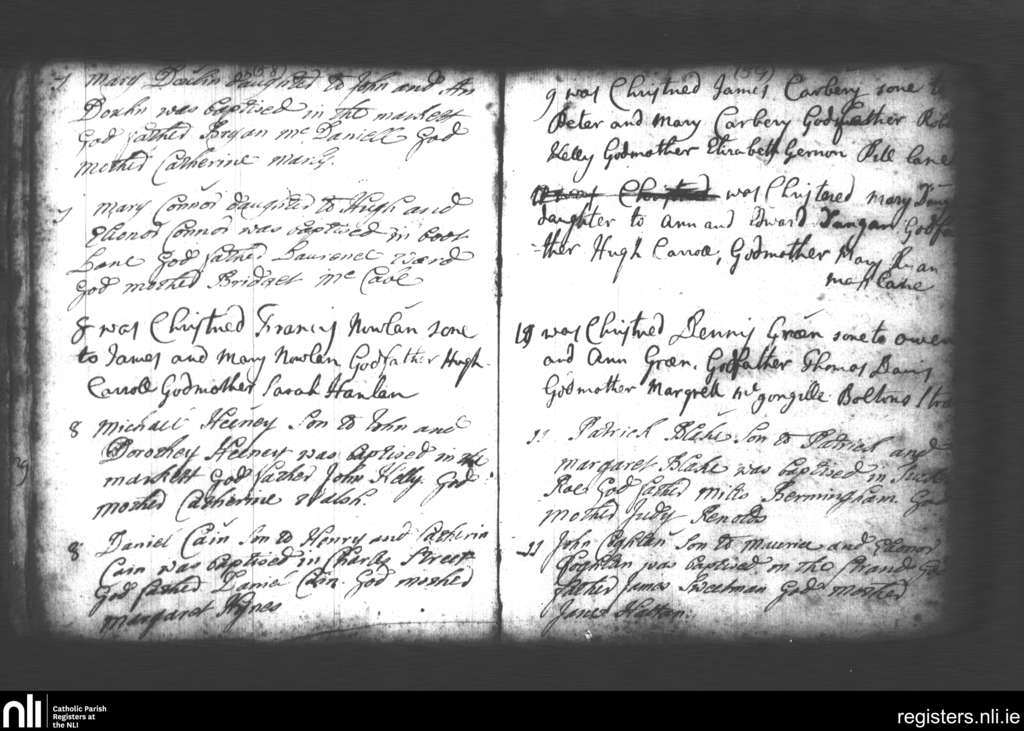 (58)
7 Mary Doulin daughted to John and An
Doulin was baptised in the markett
God fathed Bryan Mc Daniell God
Mothed Catherine
7 Mary Connor daughted to Hugh and
Elionor Connor was baptised in boot
Lane God fathed Laurence Ward
God mothed Bridget Mc Cave
8 was Christned Francis Nowlan sone
to James and Mary Nowlan Godfather Hugh
Carroll Godmother Sarah Hanlan
8 Michaell Heeney Son to John and
Dorothey Heeney was baptised in the
markett God father John Kelly. God
mothed Catherine Walsh.
8 Daniel Cain Son to Henry and Catherin
Cain was baptised in Charles Street
God fathed Daniel Cain. God mothed
Margaret Hynes
(59)
9 was Christned James Carbery sone to
Peter and Mary Carbery Godfather Rob
Kelly Godmother Elizabeth Gernon Pill lane
was Christered mary
daughter to Ann and Edward Dangan Godfa
ther Hugh Carroll, Godmother Mary Ryan
Lane
10 was Christned Dennis Green sone to owen
and Ann Green. Godfather Thomas
Godmother Margrett Boltons Stre
11 Patrick Blake Son to Patrick and
Margaret Blake was baptised in Tucke
Roe God fathed Miles Bermingham. God
Mothed Judy Renolds
11 John Coghlan Son to Maurice and Elionor
Coghlan was baptised on the Strand God
father James Sweetman God mothed
Jane
nli
Catholic Parish
Registers at
the NLI
registers.nli.ie